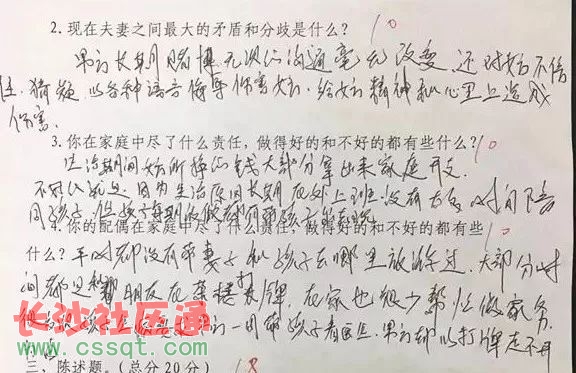 2. 现在夫妻之间最大的矛盾和分歧是什么? 10
男方长期赌博无次的沟通毫无改变. 还对女方不信
任. 猜疑 以各种语言侮辱伤害女方. 给女方精神和心里上造成
伤害.
3. 你在家庭中尽了什么责任,做得好的和不好的都有些什么? 10
生活期间女方所挣的钱大部分拿出来家庭开支.
因为生活原因长期在外上班. 没有 时间
孩子.
4. 你的配偶在家庭中尽了什么责任?做得好的和不好的都有些 10
什么? 平时都没有带妻子和孩子去哪里放游过. 大部分时
间都 朋友在茶楼打牌. 在家也很少帮忙做家务.
孩子 男方 带孩子看医生. 男方却以打牌走不开
长沙社区通
www.cssqt.com
三、陈述题。(总分 20 分) 18